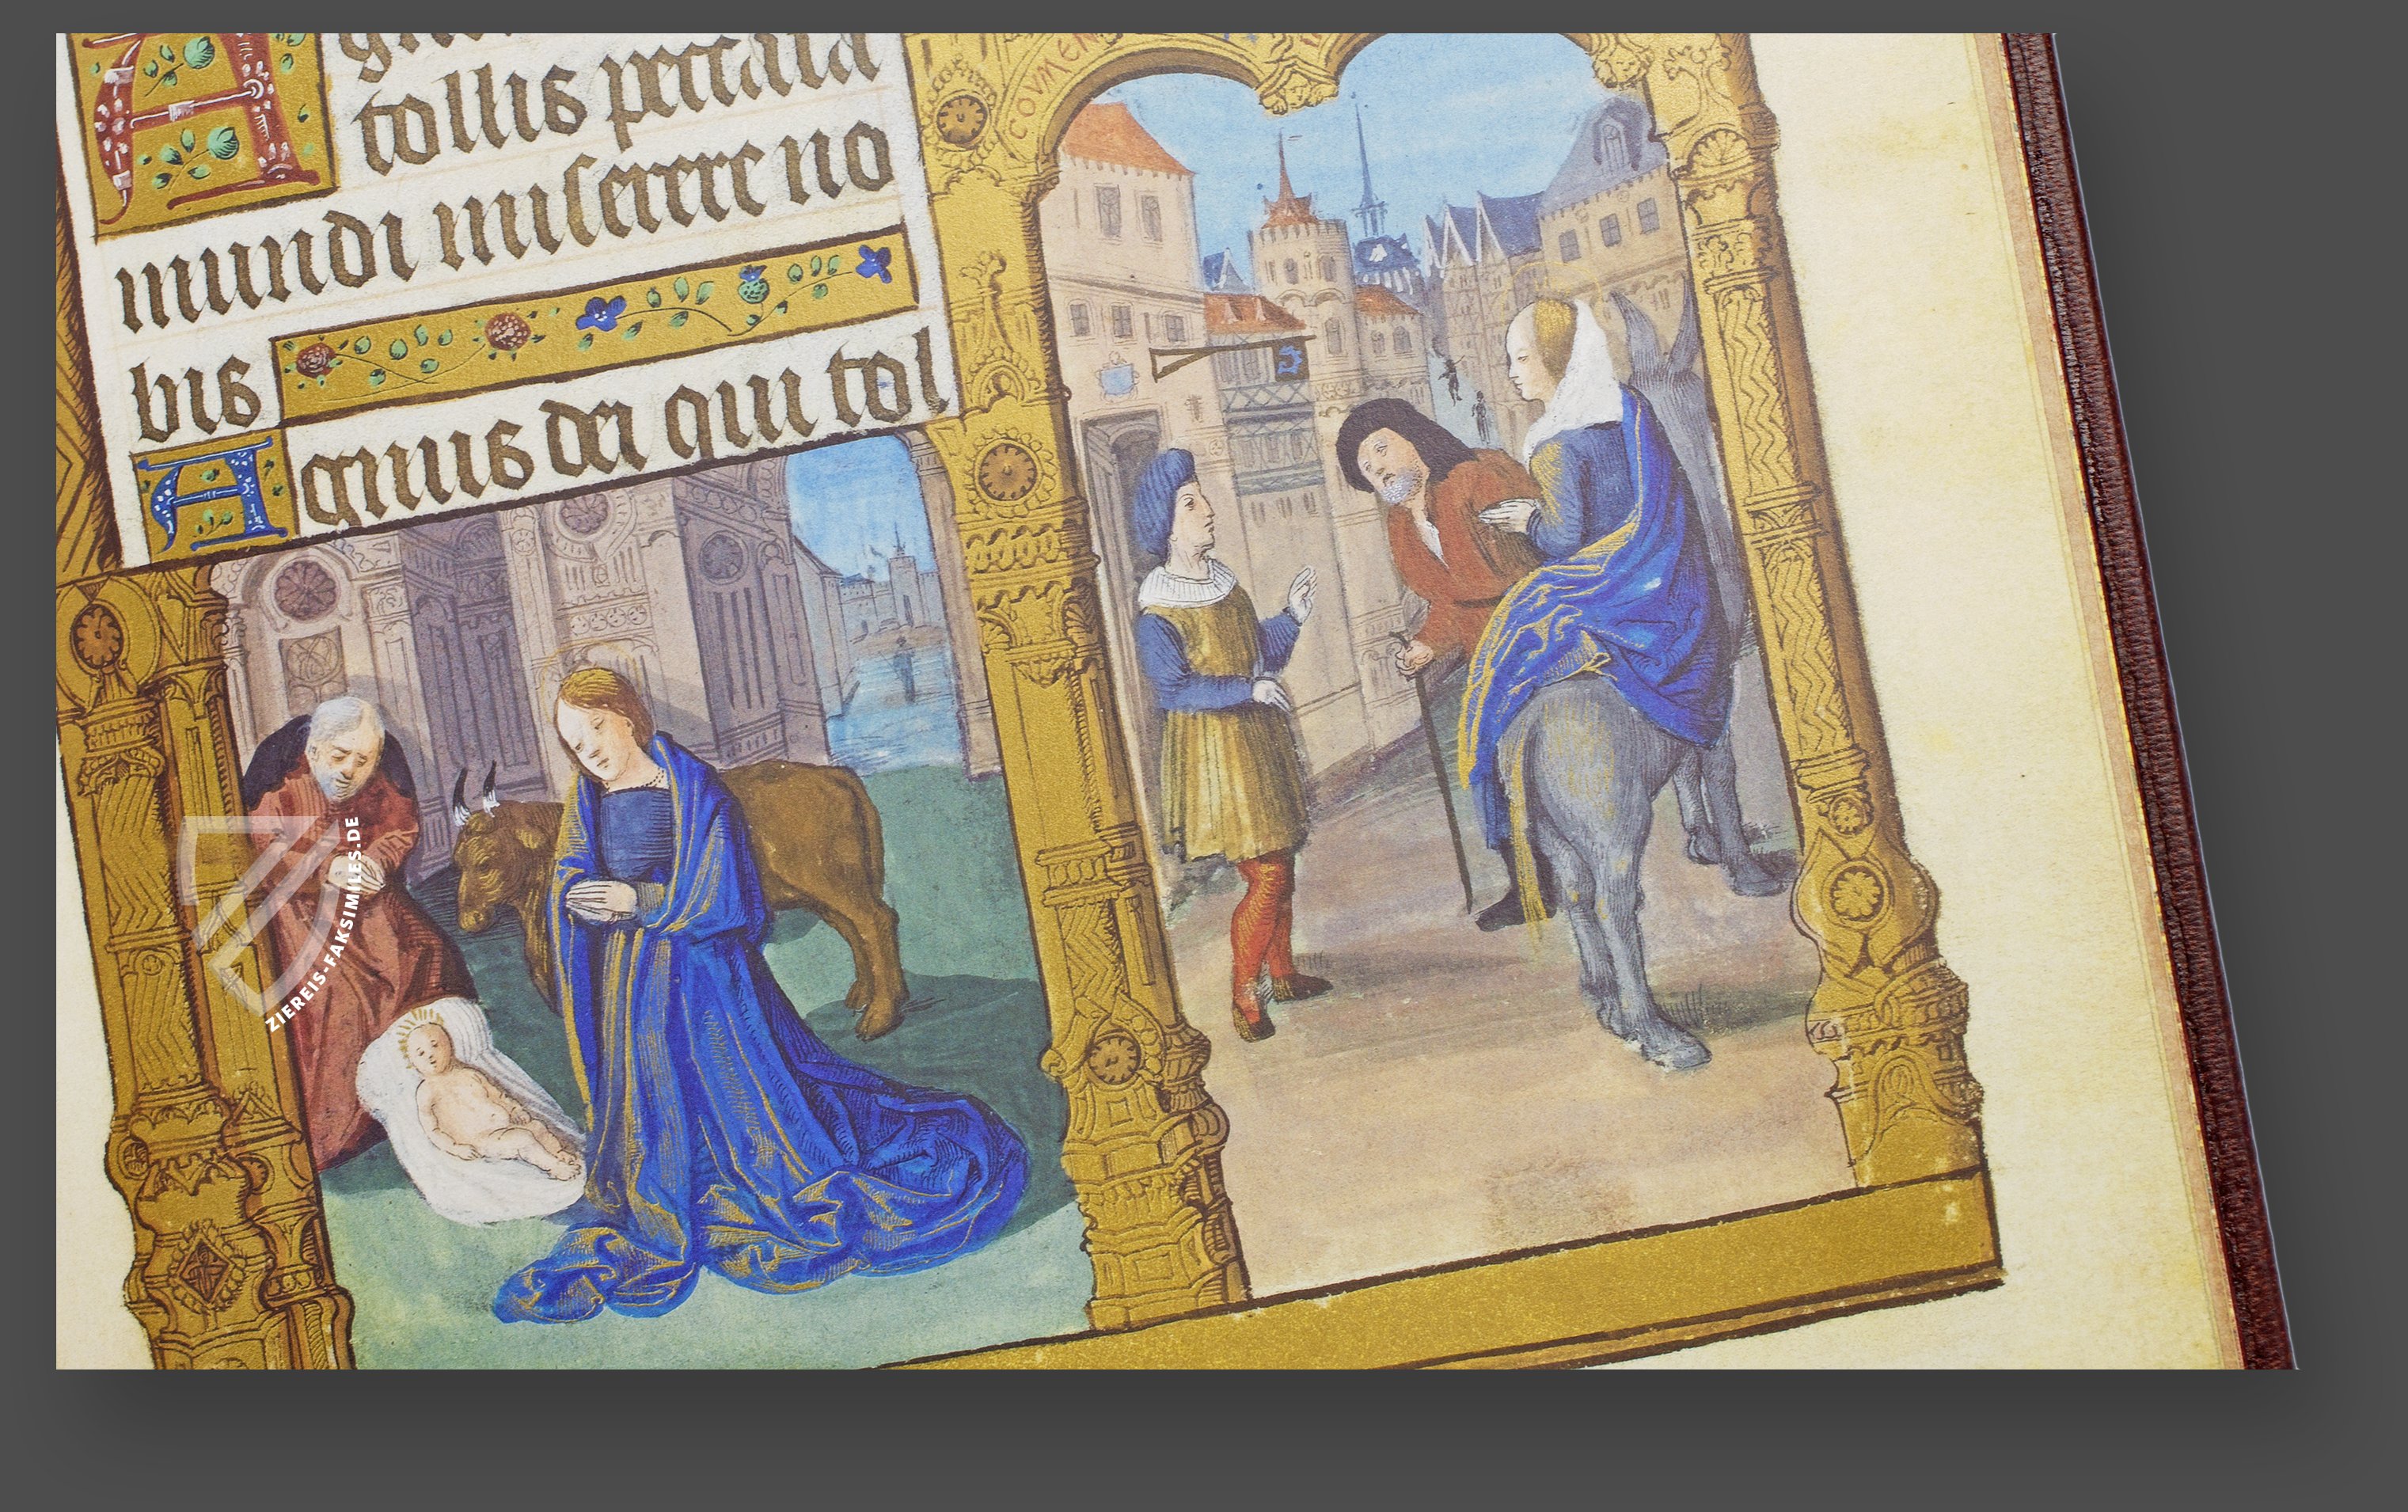 tollis peccata
mundi miserere no
bis
Agnus dei qui tol
COVMEN
ZIEREIS-FAKSIMILES.DE